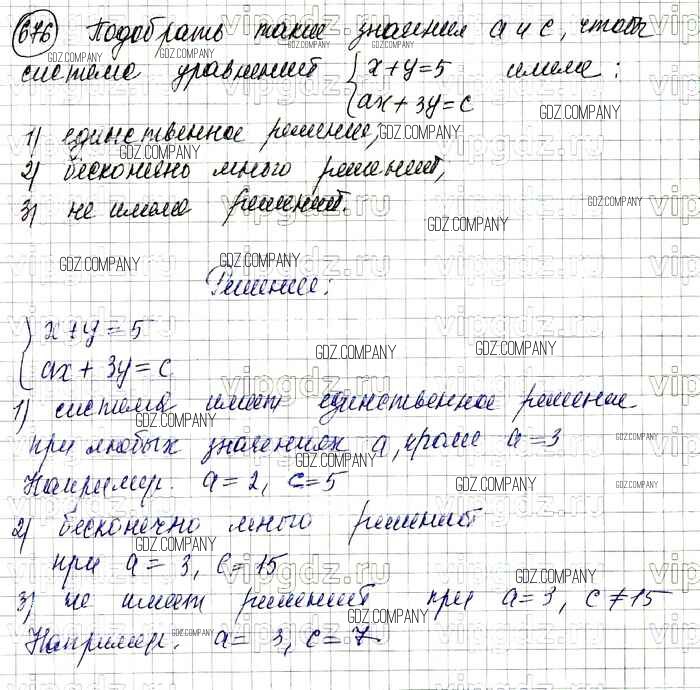 676 Подобрать такие значения a и c, чтобы
система уравнений { x+y=5 имела:
{ ax+3y=c
1) единственное решение;
2) бесконечно много решений,
3) не имела решений.
Решение:
{ x+y=5
{ ax+3y=c
1) система имеет единственное решение
при любых значениях a, кроме a=3
Например: a=2, c=5
2) бесконечно много решений
при a=3, c=15
3) не имеет решений при a=3, c≠15
Например: a=3, c=7